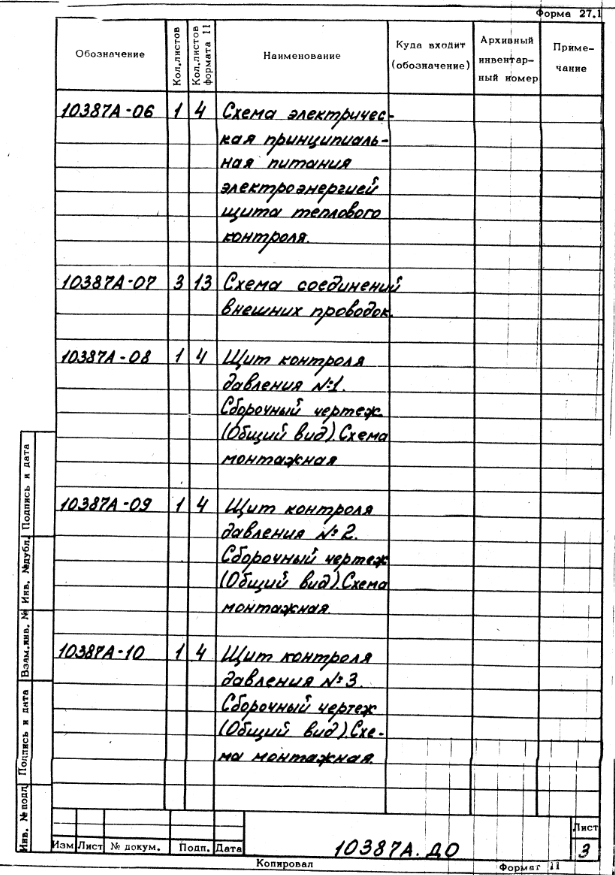 Форма 27.1
Обозначение Кол.листов Кол.листов формата 11 Наименование Куда входит (обозначение) Архивный инвентар- ный номер Приме- чание
10387А-06 1 4 Схема электричес-
кая принципиаль-
ная питания
электроэнергией
щита теплового
контроля.
10387А-07 3 13 Схема соединений
внешних проводок.
10387А-08 1 4 Щит контроля
давления №1.
Сборочный чертеж
(Общий вид).Схема
монтажная
10387А-09 1 4 Щит контроля
давления №2.
Сборочный чертеж
(Общий вид).Схема
монтажная.
10387А-10 1 4 Щит контроля
давления №3.
Сборочный чертеж
(Общий вид).Схе-
ма монтажная.
Инв. №подл Подпись и дата Взам.инв. № Инв. №дубл. Подпись и дата
Изм Лист № докум. Подп. Дата
10387А.ДО
Лист
3
Копировал Формат 11